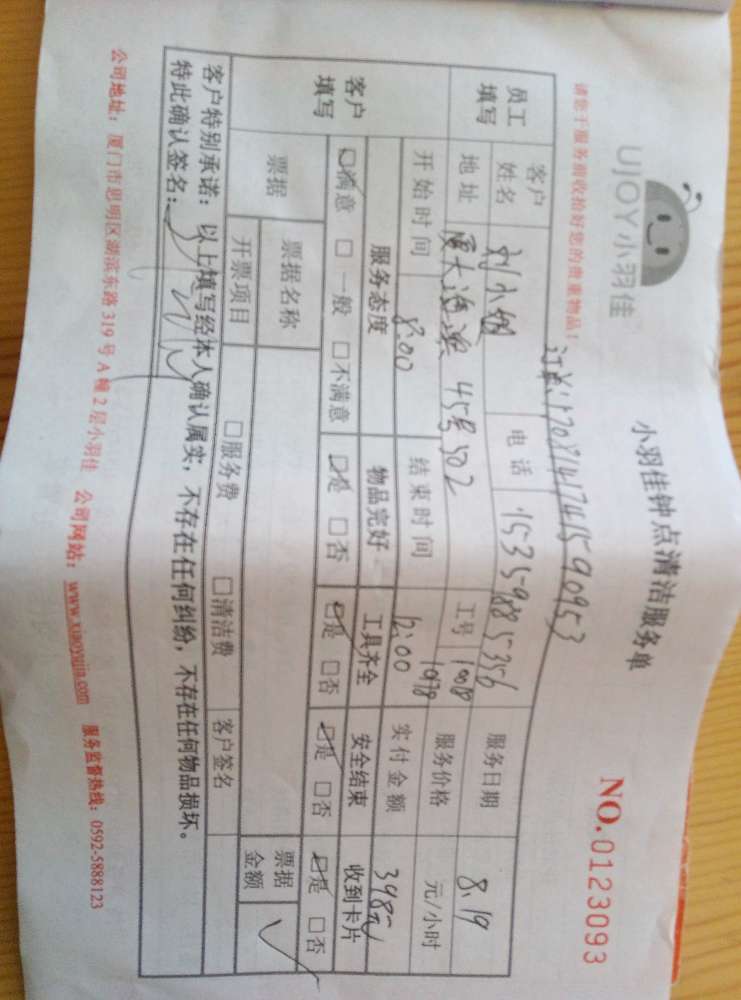 UJOY小羽佳
小羽佳钟点清洁服务单
NO.0123093
请您于服务前收拾好您的贵重物品！
员工填写
客户姓名 刘小姐 电话 服务日期 8.19
地址 458 502 工号 服务价格 元/小时
开始时间 8:00 结束时间 12:00 实付金额
客户填写
服务态度 物品完好 工具齐全 安全结束 收到卡片
☑满意 □一般 □不满意 ☑是 □否 ☑是 □否 ☑是 □否 ☑是 □否
票据 票据名称 □服务费 □清洁费 票据金额
开票项目 客户签名
客户特别承诺：以上填写经本人确认属实，不存在任何纠纷，不存在任何物品损坏。
特此确认签名：
公司地址：厦门市思明区湖滨东路319号A幢2层小羽佳 公司网站：www.xiaoyujia.com 服务监督热线：0592-5888123